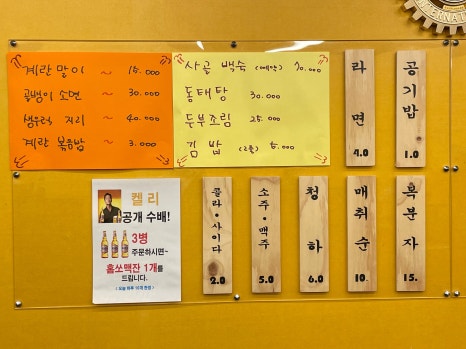 INTERNATIONAL
계란 말이 ~ 15.000
골뱅이 소면 ~ 30.000
생우럭 지리 ~ 40.000
계란 볶음밥 ~ 3.000
사골 백숙 (예약) 70.000
동태탕 30.000
두부조림 25.000
김밥 (2줄) 5.000
라면
4.0
공기밥
1.0
켈리
공개 수배!
3병
주문하시면~
홈쏘맥잔 1개를
드립니다.
콜라·사이다
2.0
소주·맥주
5.0
청하
6.0
매취순
10.
복분자
15.